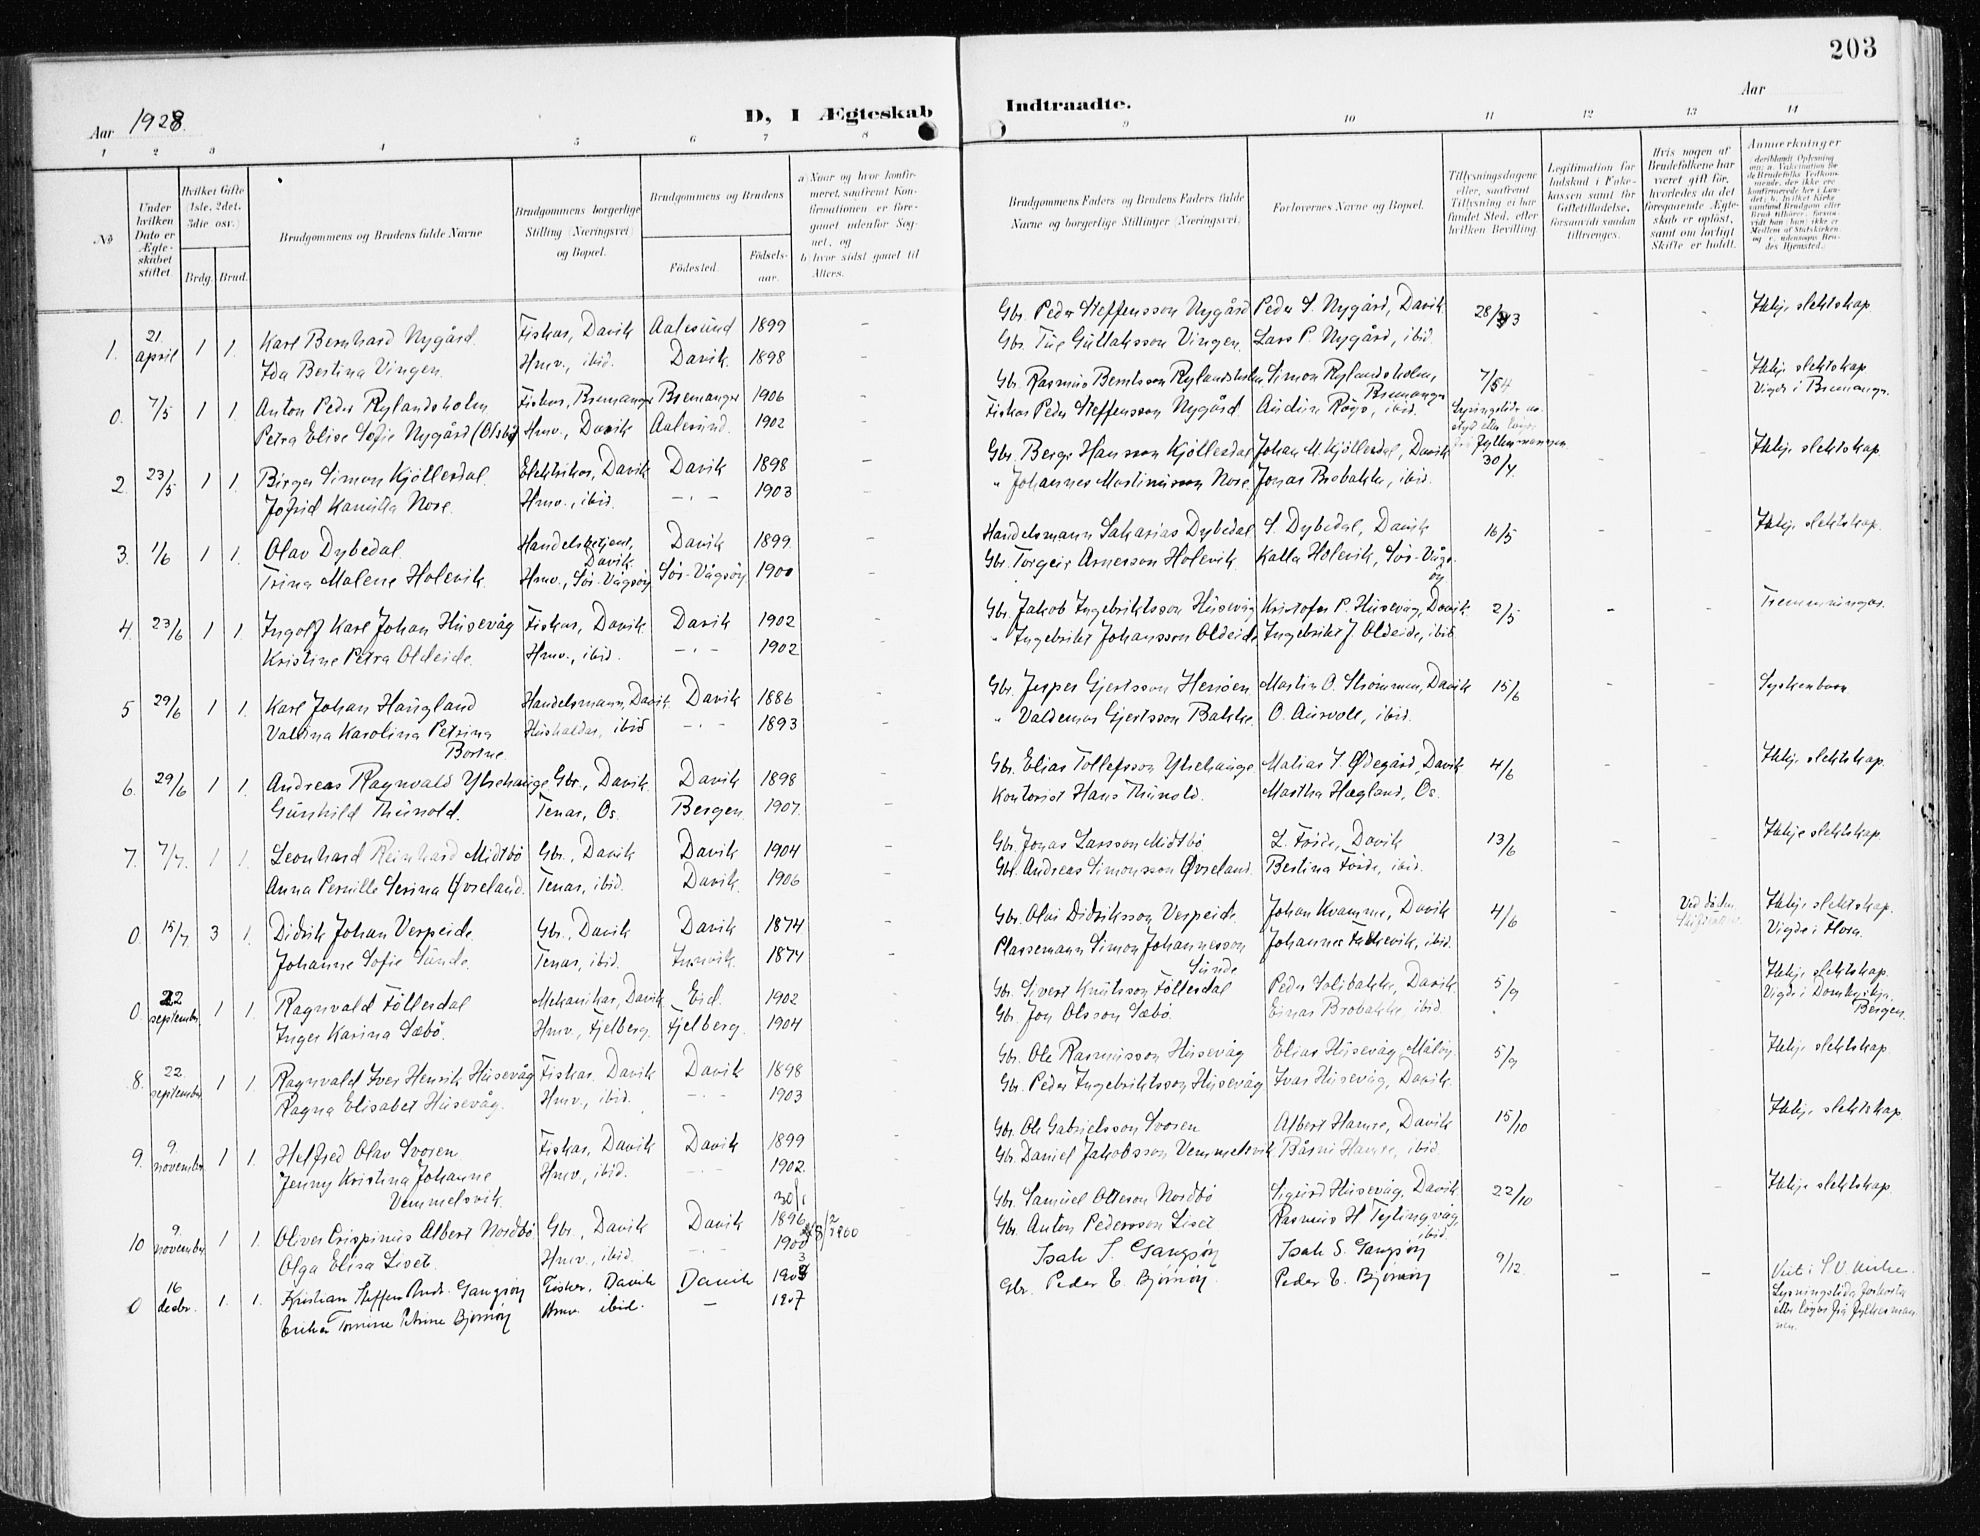 203
Aar 1928.
D, I Ægteskab Indtraadte.
Aar
1 2 3 4 5 6 7 8 9 10 11 12 13 14
No
Under hvilken Dato er Ægteskabet stiftet
Hvilket Gifte 1ste, 2det, 3die osv.
Brdg. Brud.
Brudgommens og Brudens fulde Navne
Brudgommens borgerlige Stilling (Næringsvei) og Bopæl.
Brudgommens og Brudens
Födested. Födselsaar.
a) Naar og hvor konfirmeret, saafremt Konfirmationen er foregaaet udenfor Sognet, og
b) hvor sidst gaaet til Alters.
Brudgommens Faders og Brudens Faders fulde Navne og borgerlige Stillinger (Næringsvei)
Forlovernes Navne og Bopæl.
Tillysningsdagene eller, saafremt Tillysning ei har fundet Sted, efter hvilken Bevilling.
Hvis nogen af Brudefolkene har været gift før, hvorledes da det foregaaende Ægteskab er opløst, samt om lovligt Skifte er holdt.
Anmærkninger
1. 21 april 1 1. Karl Bernhard Nygård. Fiskar, Davik Aalesund 1899 - Gbr. Peder Steffensson Nygård Peder S. Nygård, Davik. 28/3 - - Ikkje slektskap
Ida Bertina Vingen. Hmv., ibid. Davik. 1898 - Gbr. Tue Gullaksson Vingen. Lars P. Nygård, ibid.
0. 7/5 1 1. Anton Peder Rylandsholm Fiskar, Bremanger Bremanger 1906 Gbr. Rasmus Berntsson Rylandsholm Simon Rylandsholm, Bremanger 7/5 Ikkje slektskap Vigde i Bremanger.
Petra Elise Sofie Nygård Hmv., Davik Aalesund. 1902 - Fiskar Peder Steffensson Nygård. Audun Röys, ibid.
2. 23/5 1 1. Birger Simon Kjöllesdal. Elektrikar, Davik Davik 1898 - Gbr. Berge Hansson Kjöllesdal Johan M. Kjöllesdal, Davik 30/4. - - Ikkje slektskap
Jofrid Kamilla Nore. Hmv., ibid. -.- 1903 " Johannes Martinusson Nore. Jonas Brobakke, ibid.
3. 1/6 1 1. Olav Dybedal. Handelsbetjent, Davik. Davik 1899. - Handelsmann Sakarias Dybedal S. Dybedal, Davik 16/5 - - Ikkje slektskap.
Trina Malene Holevik. Hmv., Sör-Vågsöy Sör-Vågsöy 1900 - Gbr. Torgeir Arnesson Holevik. Kalla Holevik, Sör-Vågsöy
4. 23/6 1 1. Ingolf Karl Johan Husevåg Fiskar, Davik. Davik 1902 - Gbr. Jakob Ingebriktsson Husevåg Kristofer P. Husevåg, Davik. 2/5 - - Tremenningar.
Kristine Petra Oldeide. Hmv., ibid. -.- 1902 " Ingebrikt Johansson Oldeide Ingebrikt J. Oldeide, ibid.
5 29/6 1 1. Karl Johan Haugland Handelsmann, Davik. Davik 1886 - Gbr. Jesper Gjertsson Hensöen Martin O. Strömmen, Davik 15/6 - - Syskenborn.
Valdina Karolina Petrina Bortne. Hushaldar, ibid -.- 1893 - " Valdemar Gjertsson Bakke. O. Aurvoll, ibid.
6. 29/6 1 1. Andreas Ragnvald Ytrehauge Gbr., Davik. Davik 1898 - Gbr. Elias Tollefsson Ytrehauge Matias J. Ødegård, Davik 4/6 - - Ikkje slektskap.
Gunhild Thunold. Tenar, Os. Bergen. 1907. Kontorist Hans Thunold. Martha Hægland, Os.
7. 7/7. 1 1. Leonhard Reinhard Midtbö Gbr., Davik Davik 1904 - Gbr. Jonas Larsson Midtbö L. Förde, Davik 13/6 - - Ikkje slektskap.
Anna Pernille Serina Øvreland. Tenar, ibid. Davik. 1906 - Gbr. Andreas Simonsson Øvreland. Bertina Förde, ibid.
0. 15/7 3 1. Didrik Johan Verpeide. Gbr., Davik Davik 1874 Gbr. Olai Didriksson Verpeide. Johan Kvamme, Davik 4/6 - Ved döden Ikkje slektskap. Vigde i Flora.
Johanne Sofie Sunde. Tenar, ibid. 1874 - Plassemann Simon Johannesson Sunde Johannes Endevik, ibid.
0. 22 september. 1 1. Ragnvald Föllesdal Mekanikar, Davik Eid. 1902 Gbr. Sivert Knutsson Föllesdal Peder Solibakke, Davik. 5/9 - - Ikkje slektskap. Vigde i Domkyrkja, Bergen.
Inger Karina Sæbö. Hmv., Fjelberg. Fjelberg. 1904 - Gbr. Jon Olsson Sæbö. Einar Brobakke, ibid.
8. 22. september 1 1. Ragnvald Iver Henrik Husevåg Fiskar. Davik Davik 1898 - Gbr. Ole Rasmusson Husevåg Elias Husevåg, Måløy. 5/9 Ikkje slektskap.
Ragna Elisabet Husevåg. Hmv., ibid. -.- 1903 Gbr. Peder Ingebriktsson Husevåg Ivar Husevåg, Davik.
9. 9. november 1 1. Helfred Olav Svoren Fiskar, Davik Davik 1899 - Gbr. Ole Gabrielsson Svoren Albert Hamre, Davik 15/10 Ikkje slektskap.
Jenny Kristina Johanne Vemmelsvik. Hmv., ibid. -.- 1902. Gbr. Daniel Jakobsson Vemmelsvik Råsni Hamre, ibid.
10 9. november 1 1. Oliver Crispinus Albert Nordbö Gbr., Davik Davik 30/1 1896 - Gbr. Samuel Otteson Nordbö Sigurd Husevåg, Davik. 22/10 - - Ikkje slektskap.
Olga Elisa Liset. Hmv., ibid. -.- 1900 8/2 1900 Gbr. Anton Pedersson Liset Rasmus H Tytingvåg, ibid.
0 16 desbr. 1. 1. Kristian Steffen Andr. Gangsöy Fisker, Davik Davik 1903 Isak S. Gangsöy Isak S. Gangsöy 9/12 - - Viet i S.V. kirke. Lysningstida forkorta etter løyve frå fylkesmannen.
Torine Petrine Bjørnøy Hmv. ibid. - 1907 Gbr. Peder E. Bjørnøy. Peder E. Bjørnøy